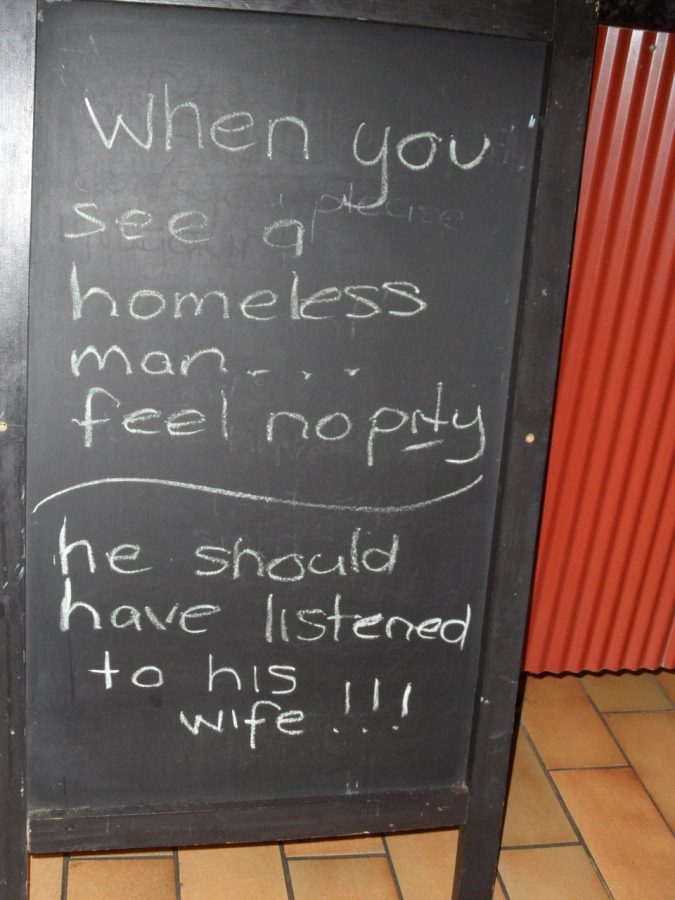 When you
see a please
homeless
man....
feel no pity
he should
have listened
to his
wife!!!